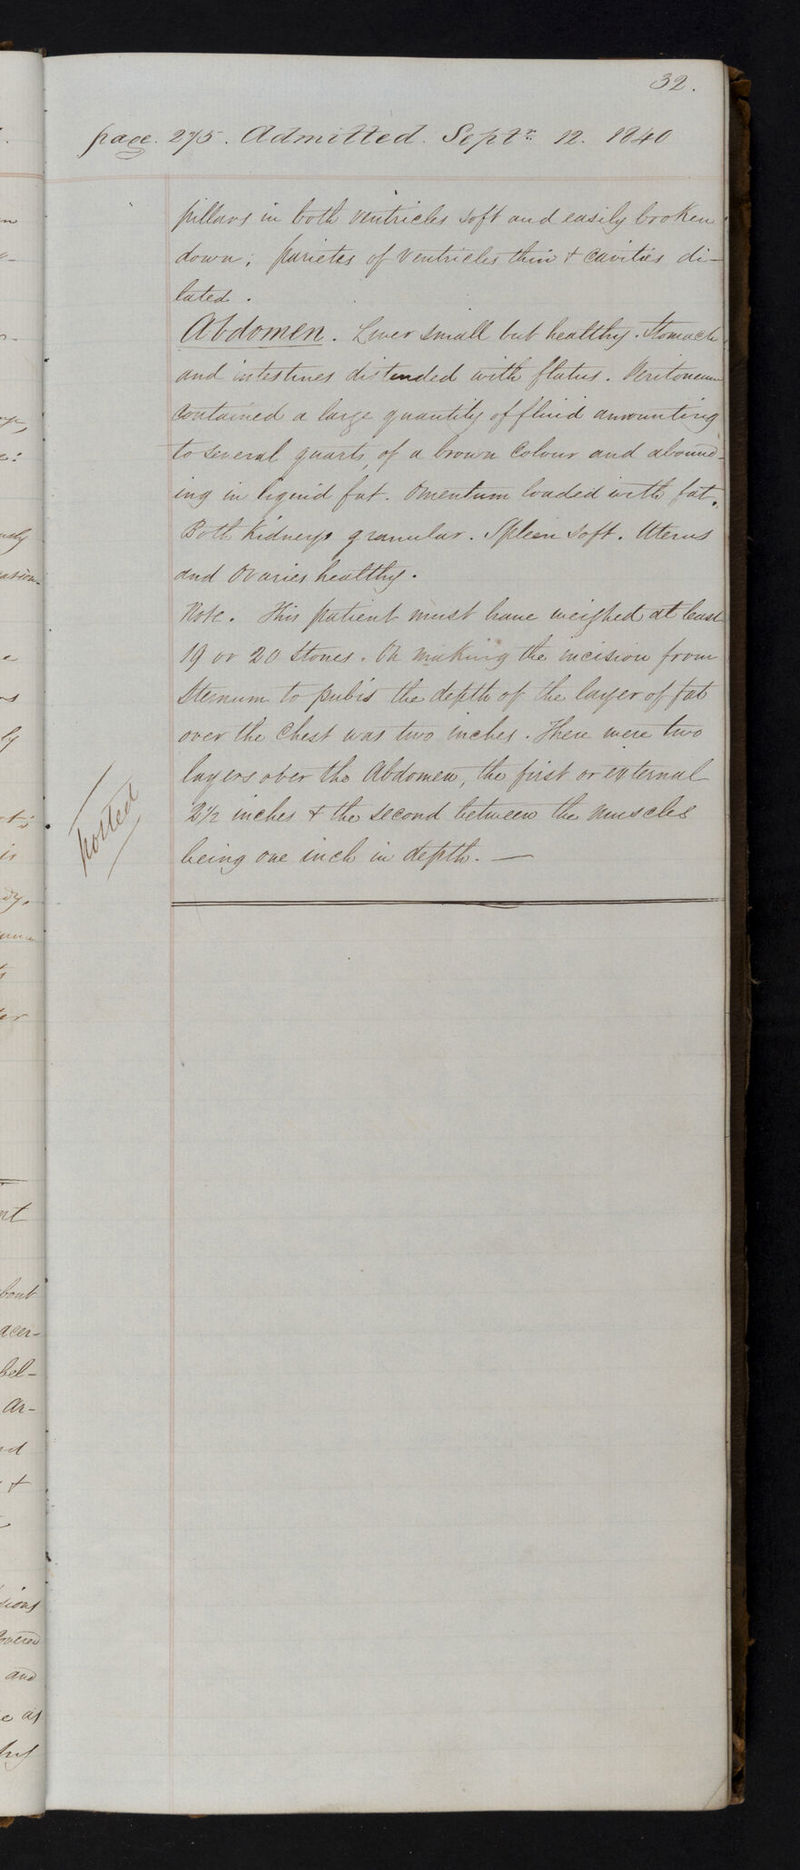 32.
page. 275. Admitted. Septr. 12. 1840
pillars in both ventricles soft and easily broken
down; parietes of ventricles thin & cavities di-
lated.
Abdomen. Liver small but healthy. Stomach
and intestines distended with flatus. Peritoneum
contained a large quantity of fluid amounting
to several quarts of a brown colour and abound-
ing in liquid fat. Omentum loaded with fat.
Both kidneys granular. Spleen soft. Uterus
and Ovaries healthy.
Note. This patient must have weighed at least
19 or 20 Stones. On making the incision from
Sternum to pubis the depth of the layer of fat
over the Chest was two inches. There were two
layers over the Abdomen, the first or external
2½ inches & the second between the muscles
being one inch in depth. —
posted